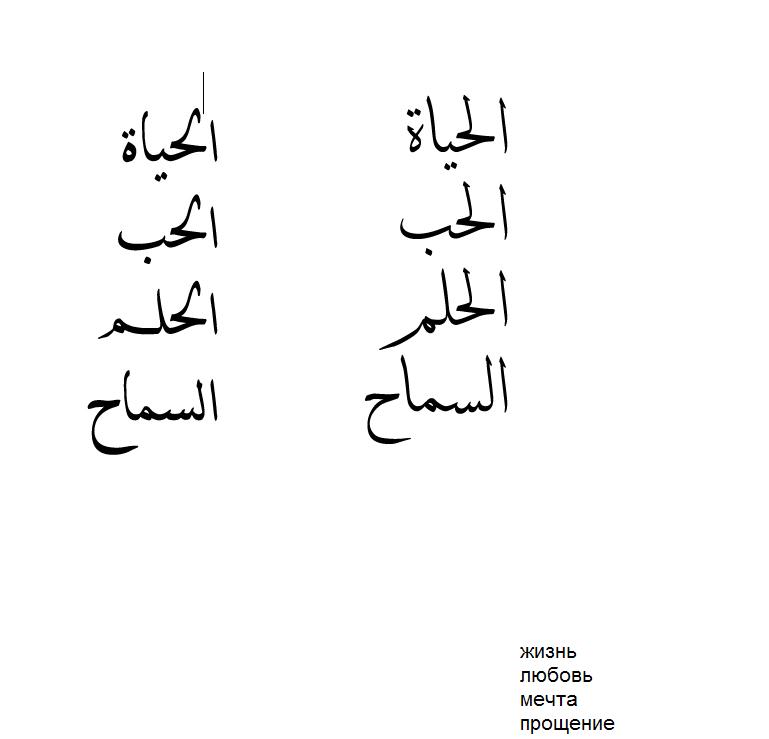 الحياة الحياة
الحب الحب
الحلم الحلم
السماح السماح
жизнь
любовь
мечта
прощение